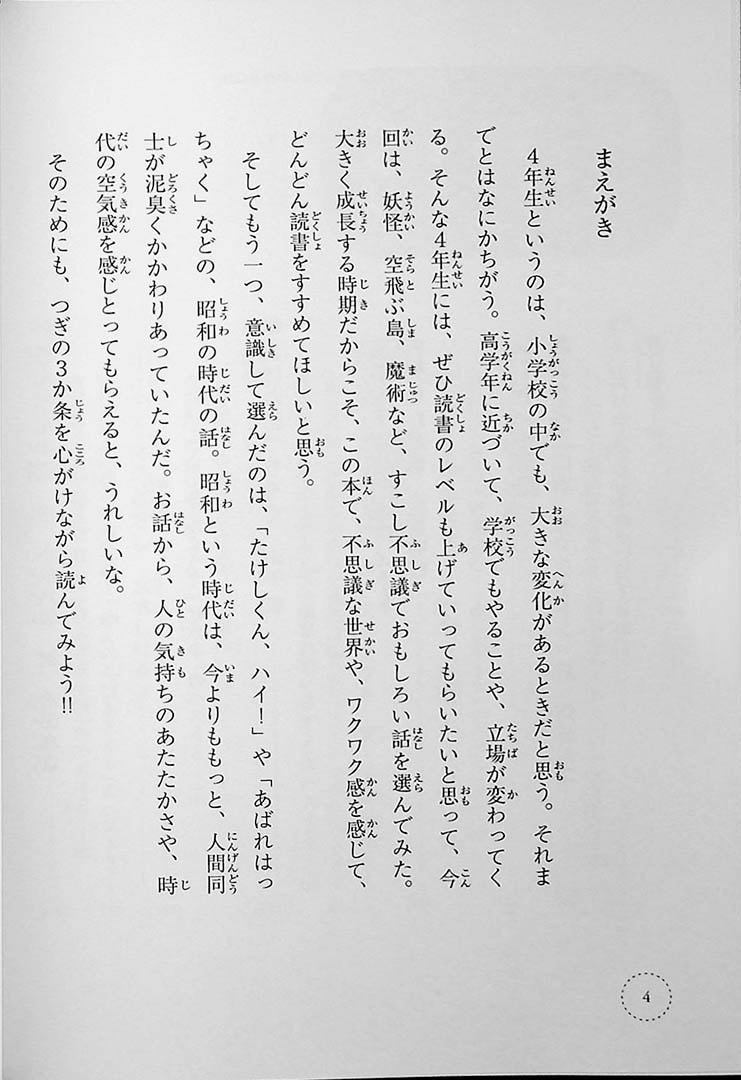 まえがき
4年生というのは、小学校の中でも、大きな変化があるときだと思う。それま
でとはなにかちがう。高学年に近づいて、学校でもやることや、立場が変わってく
る。そんな4年生には、ぜひ読書のレベルも上げていってもらいたいと思って、今
回は、妖怪、空飛ぶ島、魔術など、すこし不思議でおもしろい話を選んでみた。
大きく成長する時期だからこそ、この本で、不思議な世界や、ワクワク感を感じて、
どんどん読書をすすめてほしいと思う。
そしてもう一つ、意識して選んだのは、「たけしくん、ハイ！」や「あばれはっ
ちゃく」などの、昭和の時代の話。昭和という時代は、今よりももっと、人間同
士が泥臭くかかわりあっていたんだ。お話から、人の気持ちのあたたかさや、時
代の空気感を感じとってもらえると、うれしいな。
そのためにも、つぎの3か条を心がけながら読んでみよう!!
4